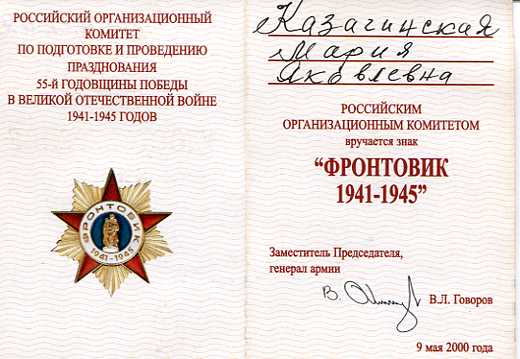 РОССИЙСКИЙ ОРГАНИЗАЦИОННЫЙ
КОМИТЕТ
ПО ПОДГОТОВКЕ И ПРОВЕДЕНИЮ
ПРАЗДНОВАНИЯ
55-й ГОДОВЩИНЫ ПОБЕДЫ
В ВЕЛИКОЙ ОТЕЧЕСТВЕННОЙ ВОЙНЕ
1941-1945 ГОДОВ
ФРОНТОВИК
1941-1945
Казачинская
Мария
Яковлевна
РОССИЙСКИМ
ОРГАНИЗАЦИОННЫМ КОМИТЕТОМ
вручается знак
“ФРОНТОВИК
1941-1945”
Заместитель Председателя,
генерал армии
В.Л. Говоров
9 мая 2000 года